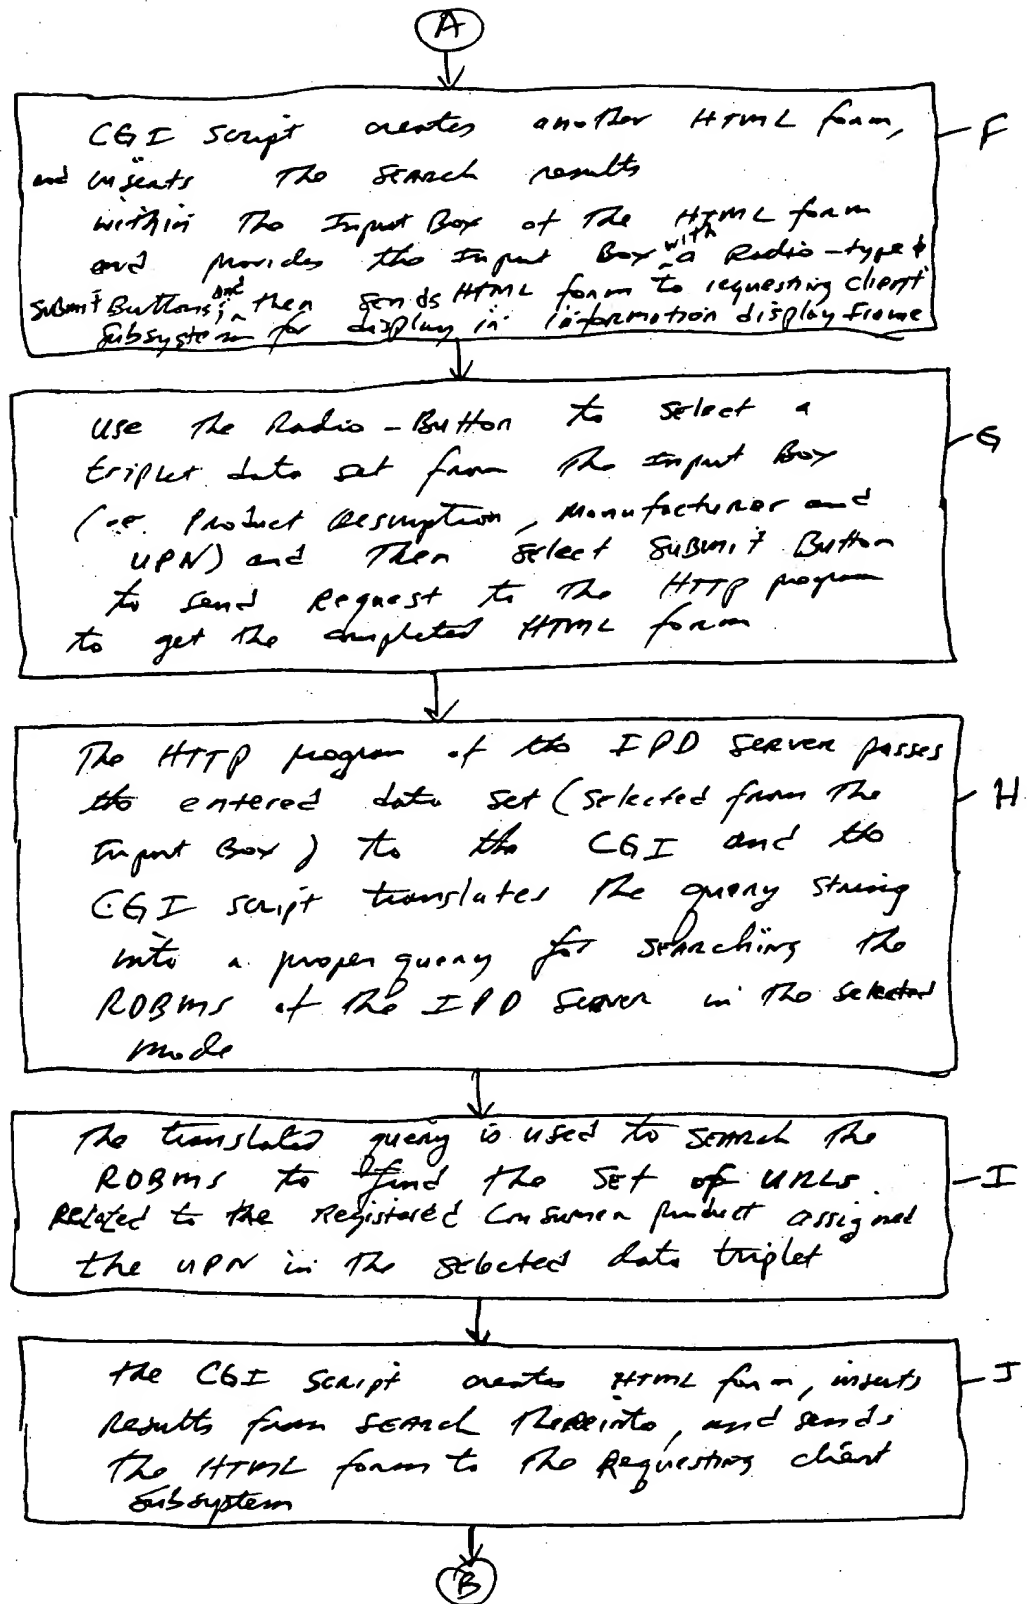 A
CGI Script creates another HTML form,
and inserts the SEARCH results
within the Input Box of the HTML form
and provides the Input Box with a Radio-type &
Submit Buttons; and then sends HTML form to requesting client
Subsystem for display in information display frame
F
use the Radio-Button to select a
triplet data set from the Input Box
(i.e. Product Description, Manufacturer and
UPN) and Then select SUBMIT Button
to send Request to the HTTP program
to get the completed HTML form
G
The HTTP program of the IPD Server passes
the entered data set (selected from the
Input Box) to the CGI and the
CGI script translates the query string
into a proper query for SEARCHing the
RDBMS of the IPD Server in the selected
mode
H
The translated query is used to SEARCH the
RDBMS to find the SET of URLs
Related to the Registered Consumer product assigned
the UPN in the selected data triplet
I
the CGI Script creates HTML form, inserts
Results from SEARCH thereinto, and sends
the HTML form to the Requesting client
Subsystem
J
B